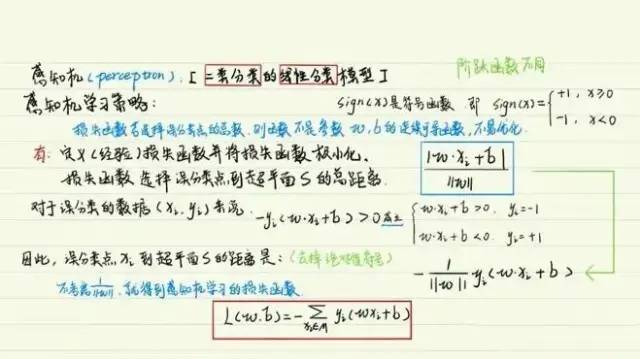 感知机(perceptron). [二类分类的线性分类模型]
阶跃函数不同
感知机学习策略:
sign(x)是符号函数 即 sign(x)={+1, x≥0
-1, x<0
损失函数若选择误分类点的总数,则函数不是参数 w,b 的连续可导函数,不易优化.
定义(经验)损失函数并将损失函数极小化.
|w·xi+b| / ||w||
损失函数 选择 误分类点到超平面S的总距离.
对于误分类的数据(xi,yi)来说. -yi(w·xi+b)>0 {w·xi+b>0. yi=-1
w·xi+b<0. yi=+1
因此,误分类点xi到超平面S的距离是:(去掉绝对值符号)
-1/||w|| yi(w·xi+b)
不考虑1/||w||, 就得到感知机学习的损失函数
L(w.b)=-∑xi∈M yi(wxi+b)